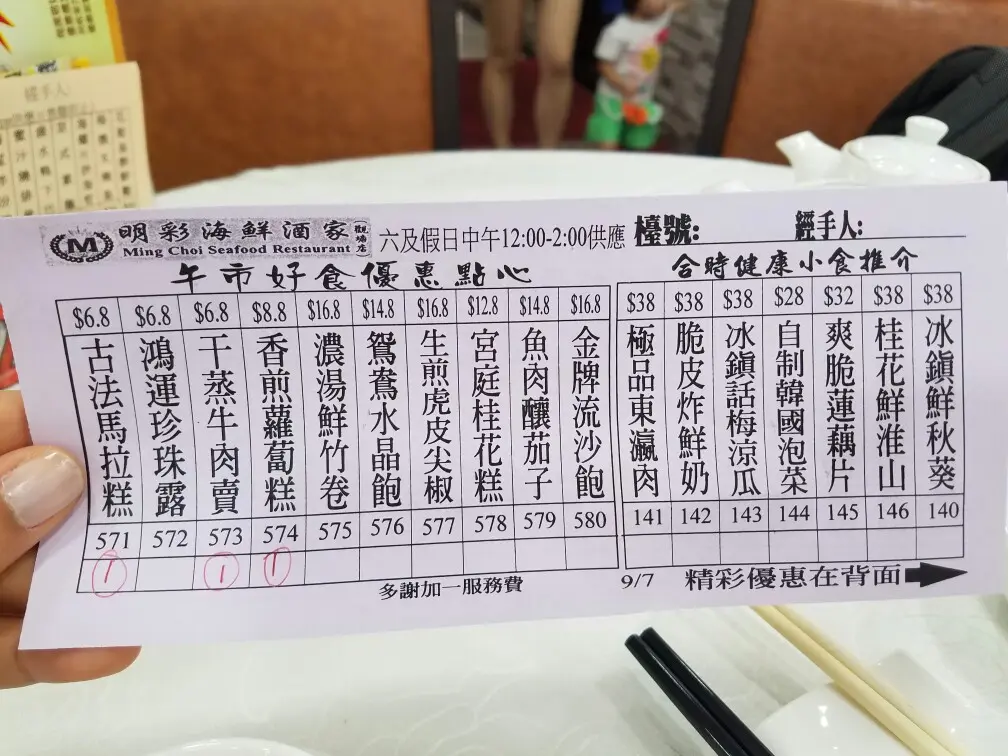 明彩海鮮酒家
觀塘店
M
Ming Choi Seafood Restaurant
六及假日中午12:00-2:00供應
檯號:
經手人:
午市好食優惠點心
合時健康小食推介
$6.8 $6.8 $6.8 $8.8 $16.8 $14.8 $16.8 $12.8 $14.8 $16.8
古法馬拉糕
鴻運珍珠露
干蒸牛肉賣
香煎蘿蔔糕
濃湯鮮竹卷
鴛鴦水晶飽
生煎虎皮尖椒
宮庭桂花糕
魚肉釀茄子
金牌流沙飽
571 572 573 574 575 576 577 578 579 580
1 1 1
$38 $38 $38 $28 $32 $38 $38
極品東瀛肉
脆皮炸鮮奶
冰鎮話梅涼瓜
自制韓國泡菜
爽脆蓮藕片
桂花鮮淮山
冰鎮鮮秋葵
141 142 143 144 145 146 140
多謝加一服務費
9/7
精彩優惠在背面
經手人